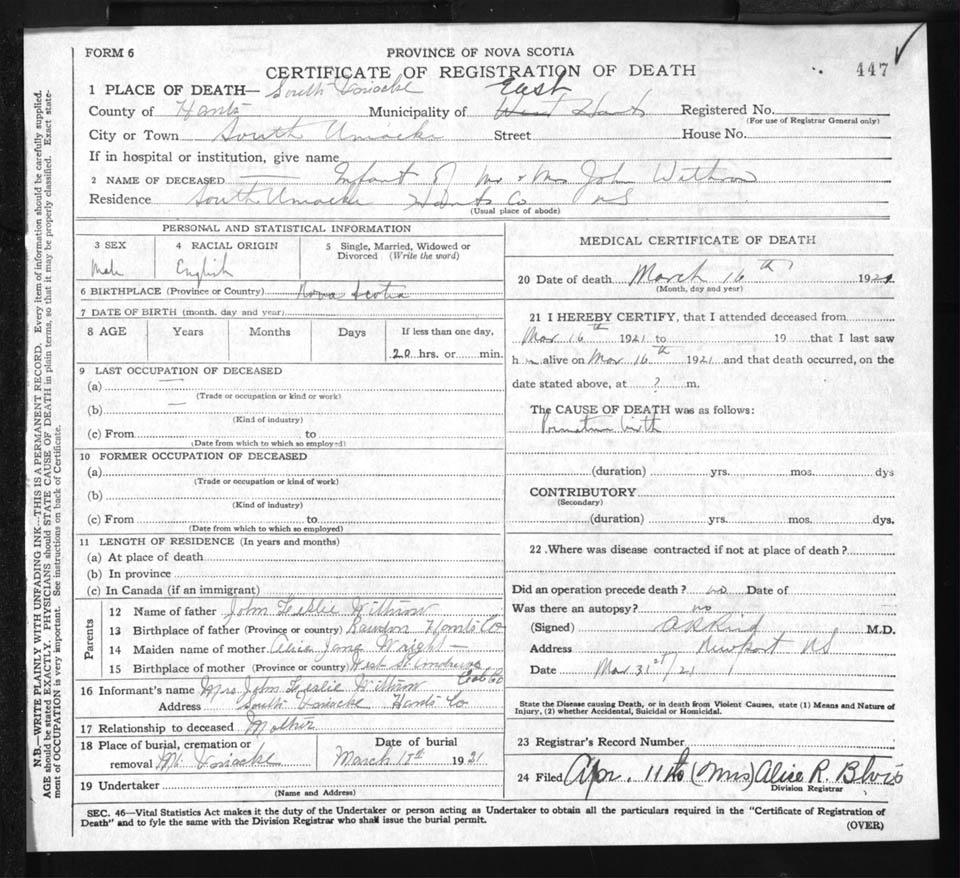 FORM 6
PROVINCE OF NOVA SCOTIA
CERTIFICATE OF REGISTRATION OF DEATH
447
1 PLACE OF DEATH— South Uniacke
East
County of Hants Municipality of West Hants Registered No.
(For use of Registrar General only)
City or Town South Uniacke Street House No.
If in hospital or institution, give name
2 NAME OF DECEASED Infant of Mr & Mrs John Withrow
Residence South Uniacke Hants Co NS
(Usual place of abode)
PERSONAL AND STATISTICAL INFORMATION
3 SEX 4 RACIAL ORIGIN 5 Single, Married, Widowed or
Divorced (Write the word)
Male English
6 BIRTHPLACE (Province or Country) Nova Scotia
7 DATE OF BIRTH (month, day and year)
8 AGE Years Months Days If less than one day,
20 hrs. or min.
9 LAST OCCUPATION OF DECEASED
(a)
(Trade or occupation or kind or work)
(b)
(Kind of industry)
(c) From to
(Date from which to which so employed)
10 FORMER OCCUPATION OF DECEASED
(a)
(Trade or occupation or kind of work)
(b)
(Kind of industry)
(c) From to
(Date from which to which so employed)
11 LENGTH OF RESIDENCE (In years and months)
(a) At place of death
(b) In province
(c) In Canada (if an immigrant)
Parents
12 Name of father John Leslie Withrow
13 Birthplace of father (Province or country) Rawdon Hants Co
14 Maiden name of mother Alice Jane Wright
15 Birthplace of mother (Province or country) West St Andrews
Col Co
16 Informant's name Mrs John Leslie Withrow
Address South Uniacke Hants Co
17 Relationship to deceased Mother
18 Place of burial, cremation or Date of burial
removal Mt Uniacke March 17th 1921
19 Undertaker
(Name and Address)
MEDICAL CERTIFICATE OF DEATH
20 Date of death March 16th 1921
(Month, day and year)
21 I HEREBY CERTIFY, that I attended deceased from
Mar 16th 1921 to 19 that I last saw
him alive on Mar 16th 1921 and that death occurred, on the
date stated above, at ? m.
The CAUSE OF DEATH was as follows:
Premature birth
(duration) yrs. mos. dys
CONTRIBUTORY
(Secondary)
(duration) yrs. mos. dys.
22 Where was disease contracted if not at place of death?
Did an operation precede death? no Date of
Was there an autopsy? no
(Signed) M.D.
Address Newport NS
Date Mar 31st/21
State the Disease causing Death, or in death from Violent Causes, state (1) Means and Nature of
Injury, (2) whether Accidental, Suicidal or Homicidal.
23 Registrar's Record Number
24 Filed Apr. 11th (Mrs) Alice R. Blois
Division Registrar
SEC. 46—Vital Statistics Act makes it the duty of the Undertaker or person acting as Undertaker to obtain all the particulars required in the "Certificate of Registration of
Death" and to fyle the same with the Division Registrar who shall issue the burial permit.
(OVER)
N.B.—WRITE PLAINLY WITH UNFADING INK—THIS IS A PERMANENT RECORD. Every item of information should be carefully supplied.
AGE should be stated EXACTLY. PHYSICIANS should STATE CAUSE OF DEATH in plain terms, so that it may be properly classified. Exact state-
ment of OCCUPATION is very important. See instructions on back of Certificate.